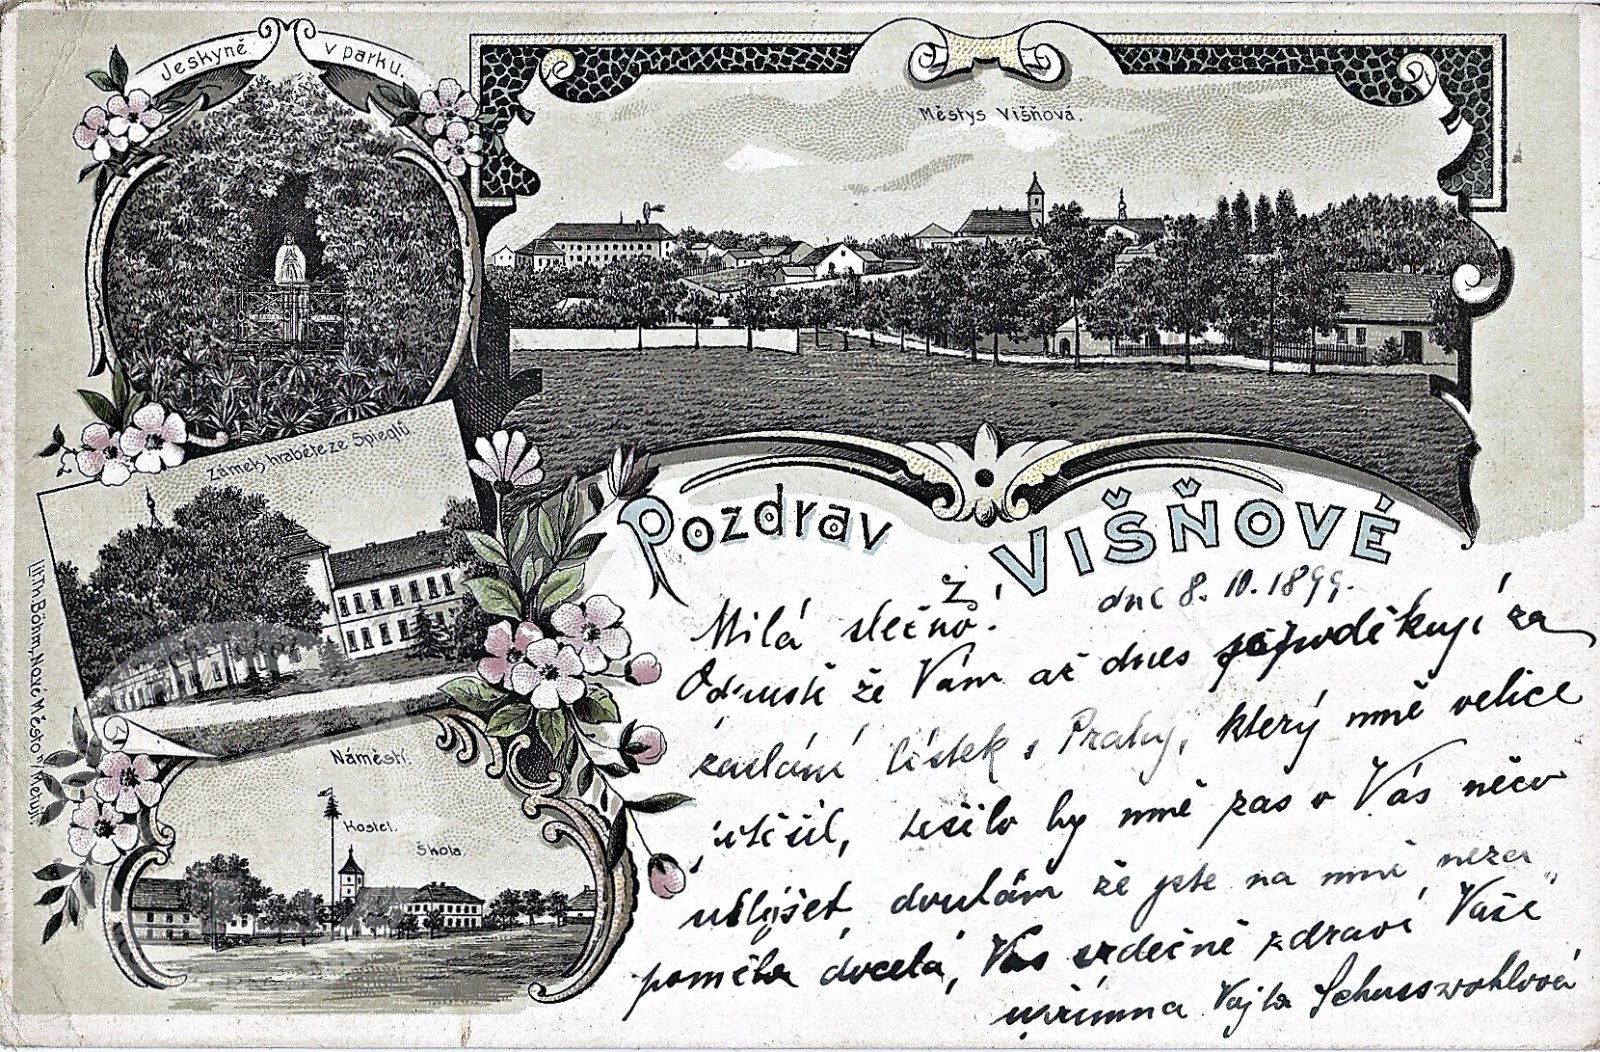 Jeskyně v parku.
Městys Višňová.
Zámek hraběte ze Spieglů
Náměstí.
Kostel.
Škola.
LITH. Böhm, Nové Město n/Metují.
Pozdrav
z
VIŠŇOVÉ
dne 8. 10. 1899.
Milá slečno!
Odpusťte že Vám až dnes poděkuji za
zaslaný lístek z Prahy, který mně velice
těšil, těšilo by mně zas o Vás něco
uslyšet, doufám že jste na mně neza„
poměla docela, Vás srdečně zdraví Vaše"
upřímna